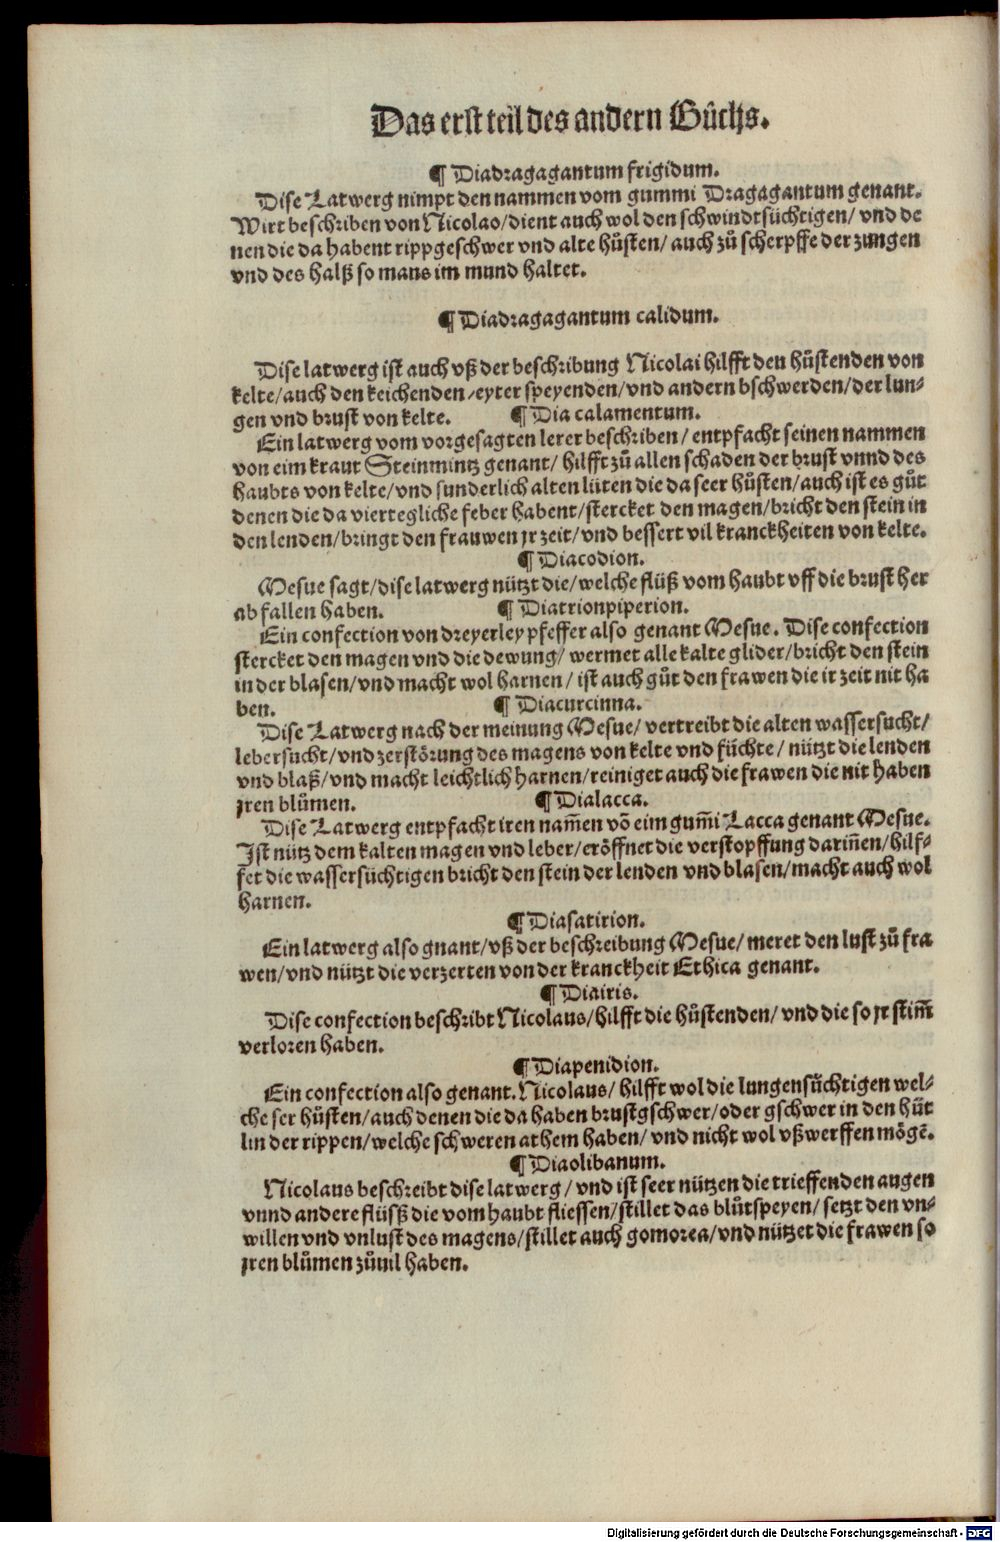 Das erst teil des andern Bůchs.
¶ Diadragagantum frigidum.
Dise Latwerg nimpt den nammen vom gummi Dragagantum genant.
Wirt beschriben von Nicolao/dient auch wol den schwindtsüchtigen/ vnd de
nen die da habent rippgeschwer vnd alte hůsten/ auch zů scherpffe der zungen
vnd des halß so mans im mund haltet.
¶ Diadragagantum calidum.
Dise latwerg ist auch vß der beschribung Nicolai hilfft den hůstenden von
kelte/auch den keichenden/eyter speyenden/vnd andern bschwerden/der lun-
gen vnd brust von kelte. ¶ Dia calamentum.
Ein latwerg vom vorgesagten lerer beschriben/ entpfacht seinen nammen
von eim kraut Steinmintz genant/ hilfft zů allen schaden der brust vnnd des
haubts von kelte/vnd sunderlich alten lüten die da seer hůsten/auch ist es gůt
denen die da viertegliche feber habent/stercket den magen/bricht den stein in
den lenden/bringt den frauwen jr zeit/vnd bessert vil kranckheiten von kelte.
¶ Diacodion.
Mesue sagt/dise latwerg nützt die/welche flüß vom haubt vff die brust her
ab fallen haben. ¶ Diatrionpiperion.
Ein confection von dreyerley pfeffer also genant Mesue. Dise confection
stercket den magen vnd die dewung/ wermet alle kalte glider/bricht den stein
in der blasen/vnd macht wol harnen/ ist auch gůt den frawen die ir zeit nit ha
ben. ¶ Diacurcinna.
Dise Latwerg nach der meinung Mesue/ vertreibt die alten wassersucht/
lebersucht/vnd zerstörung des magens von kelte vnd füchte/ nützt die lenden
vnd blaß/vnd macht leichtlich harnen/reiniget auch die frawen die nit haben
jren blůmen. ¶ Dialacca.
Dise Latwerg entpfacht iren nam̄en võ eim gum̄i Lacca genant Mesue.
Ist nütz dem kalten magen vnd leber/eröffnet die verstopffung darin̄en/hilf-
fet die wassersüchtigen bricht den stein der lenden vnd blasen/macht auch wol
harnen.
¶ Diasatirion.
Ein latwerg also gnant/vß der beschreibung Mesue/ meret den lust zů fra
wen/vnd nützt die verzerten von der kranckheit Ethica genant.
¶ Diairis.
Dise confection beschribt Nicolaus/hilfft die hůstenden/ vnd die so jr stim̄
verloren haben.
¶ Diapenidion.
Ein confection also genant. Nicolaus/ hilfft wol die lungensüchtigen wel-
che ser hůsten/auch denen die da haben brustgschwer/oder gschwer in den hüt
lin der rippen/welche schweren athem haben/ vnd nicht wol vßwerffen mögẽ.
¶ Diaolibanum.
Nicolaus beschreibt dise latwerg/ vnd ist seer nützen die trieffenden augen
vnnd andere flüsß die vom haubt fliessen/stillet das blůtspeyen/ setzt den vn-
willen vnd vnlust des magens/stillet auch gomorea/vnd nützet die frawen so
jren blůmen zůuil haben.
Digitalisierung gefördert durch die Deutsche Forschungsgemeinschaft - DFG